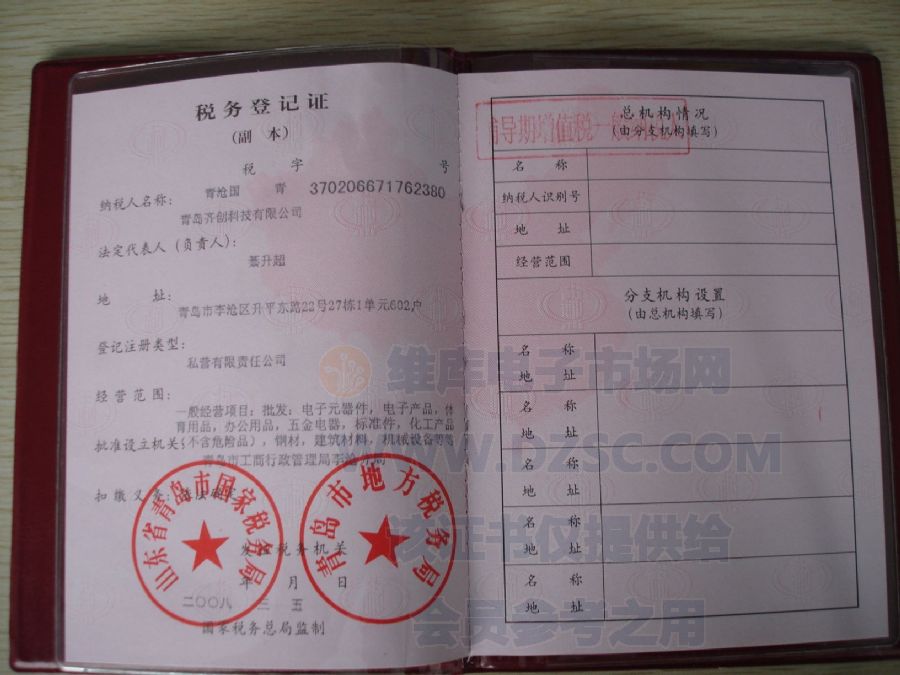 税务登记证
(副 本)
税 字 号
青地国 青 370206671762380
纳税人名称:
青岛齐创科技有限公司
法定代表人(负责人):
升超
地 址:
青岛市李沧区升平东路22号27栋1单元602户
登记注册类型:
私营有限责任公司
经营范围:
一般经营项目:批发:电子元器件,电子产品,体
育用品,办公用品,五金电器,标准件,化工产品
批准设立机关:
(不含危险品),钢材,建筑材料,机械设备等等
青岛市工商行政管理局李沧分局
扣缴义务:
山东省青岛市国家税务局
青岛市地方税务局
发证税务机关
年 月 日
二〇〇八 三 五
国家税务总局监制
辅导期增值税一般纳税人
总机构情况
(由分支机构填写)
名 称
纳税人识别号
地 址
经营范围
分支机构设置
(由总机构填写)
名 称
地 址
名 称
地 址
名 称
地 址
名 称
地 址
名 称
地 址
维库电子市场网
WWW.DZSC.COM
该证书仅提供给
会员参考之用